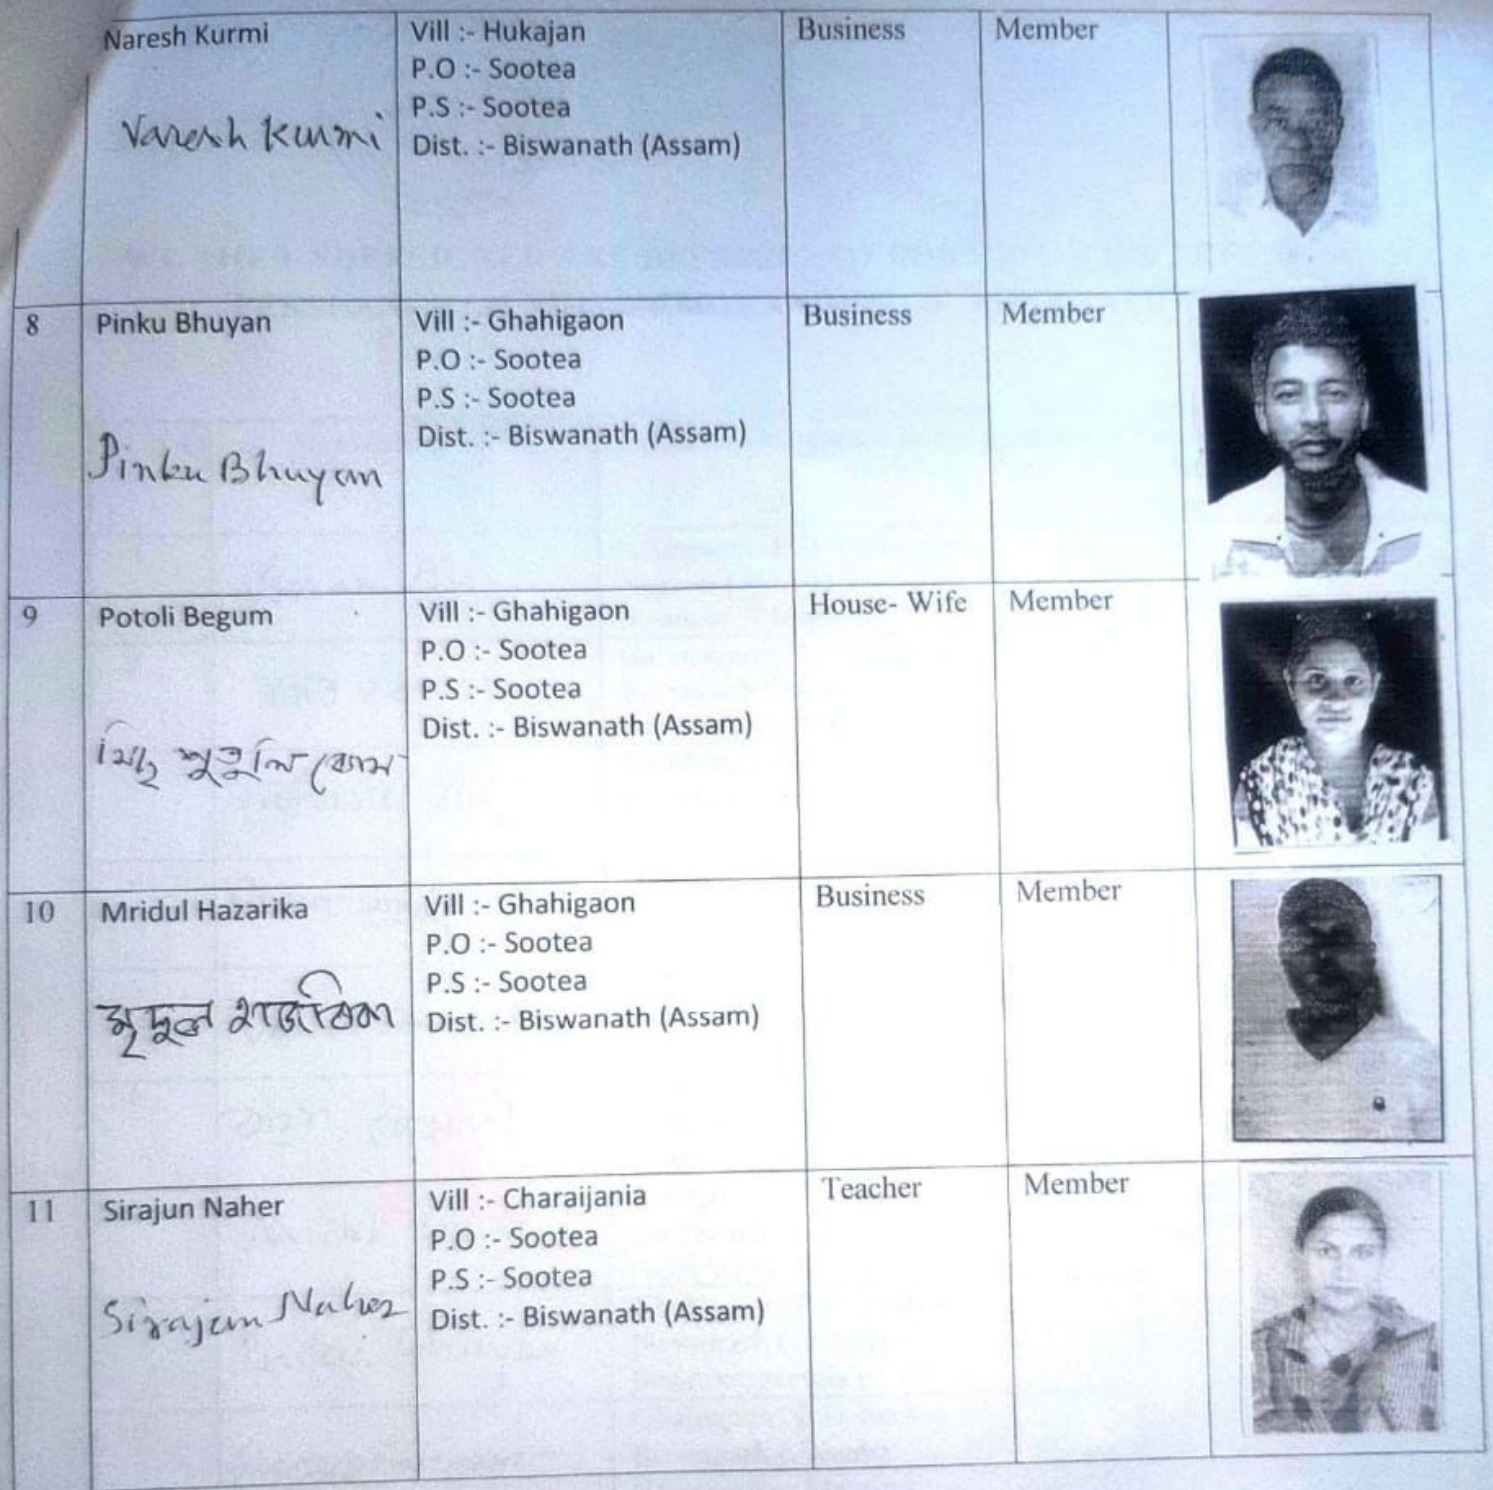 Naresh Kurmi
Vill :- Hukajan
P.O :- Sootea
P.S :- Sootea
Dist. :- Biswanath (Assam)
Business
Member
Naresh Kurmi
8
Pinku Bhuyan
Vill :- Ghahigaon
P.O :- Sootea
P.S :- Sootea
Dist. :- Biswanath (Assam)
Business
Member
Pinku Bhuyan
9
Potoli Begum
Vill :- Ghahigaon
P.O :- Sootea
P.S :- Sootea
Dist. :- Biswanath (Assam)
House- Wife
Member
10
Mridul Hazarika
Vill :- Ghahigaon
P.O :- Sootea
P.S :- Sootea
Dist. :- Biswanath (Assam)
Business
Member
মৃদুল হাজৰিকা
11
Sirajun Naher
Vill :- Charaijania
P.O :- Sootea
P.S :- Sootea
Dist. :- Biswanath (Assam)
Teacher
Member
Sirajun Naher